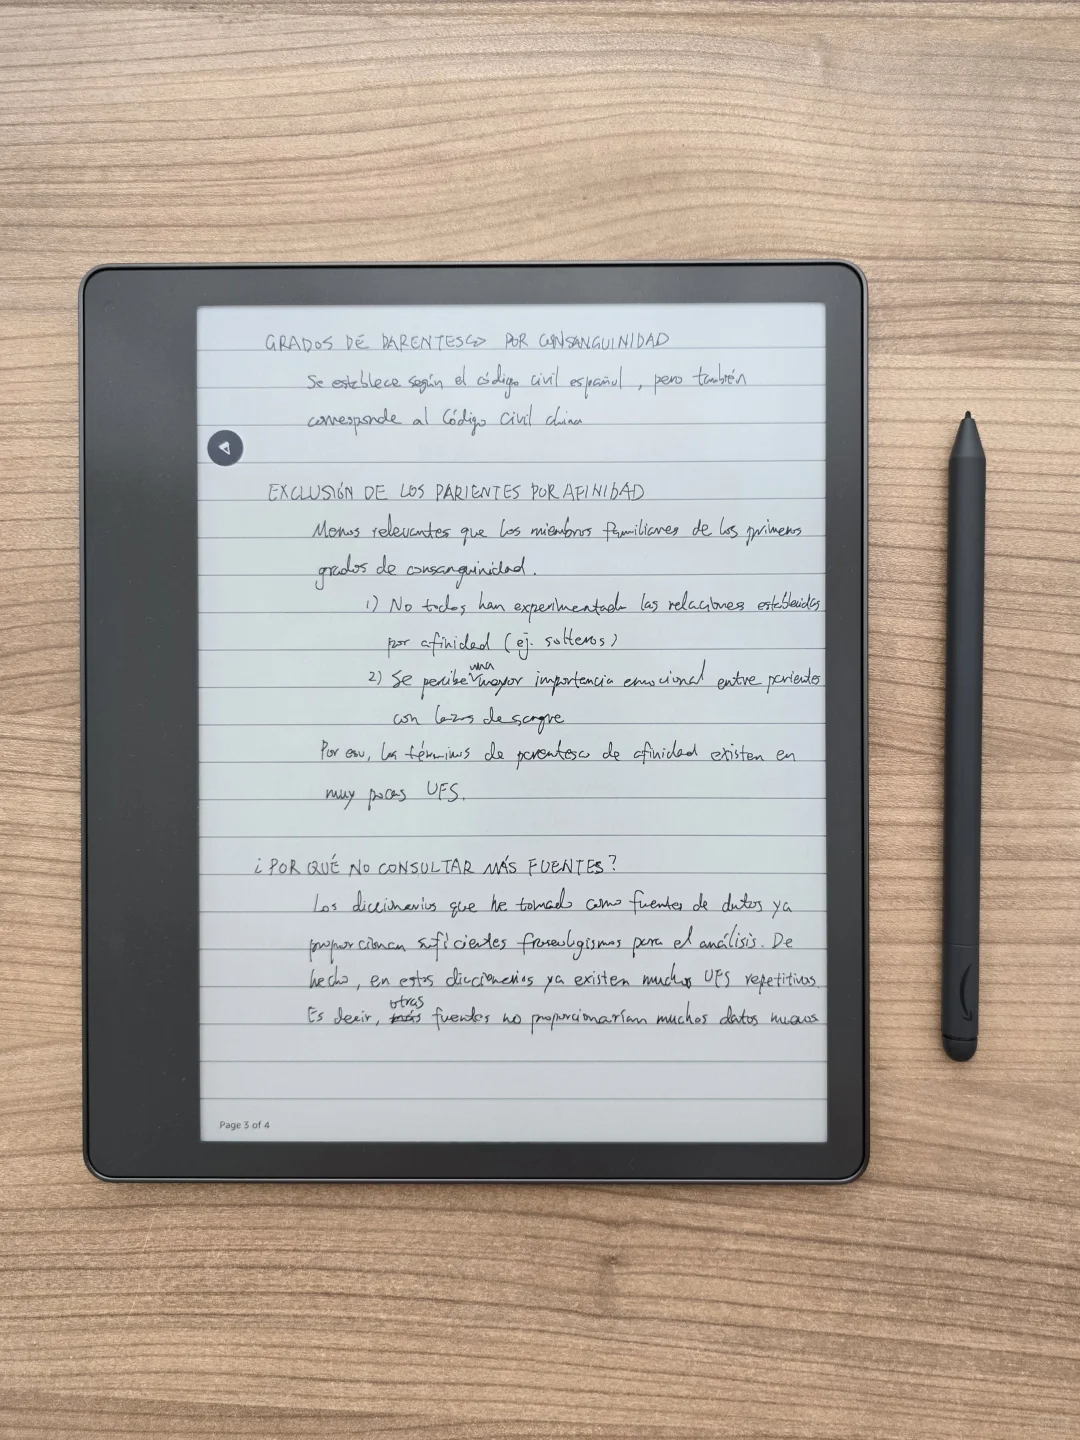 GRADOS DE PARENTESCO POR CONSANGUINIDAD
Se establece según el código civil español, pero también
corresponde al Código Civil chino
EXCLUSIÓN DE LOS PARIENTES POR AFINIDAD
Menos relevantes que los miembros familiares de los primeros
grados de consanguinidad.
1) No todos han experimentado las relaciones establecidas
por afinidad (ej. solteros)
2) Se percibe una mayor importancia emocional entre parientes
con lazos de sangre
Por eso, los términos de parentesco de afinidad existen en
muy pocas UFS.
¿POR QUÉ NO CONSULTAR MÁS FUENTES?
Los diccionarios que he tomado como fuentes de datos ya
proporcionan suficientes fraseologismos para el análisis. De
hecho, en estos diccionarios ya existen muchas UFS repetitivas.
Es decir, más otras fuentes no proporcionarían muchos datos nuevos
Page 3 of 4